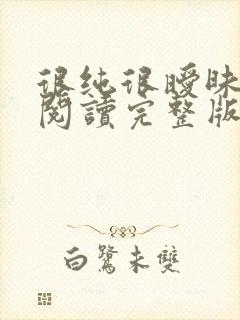 很純很曖昧
閱讀完整版
白鷺未雙